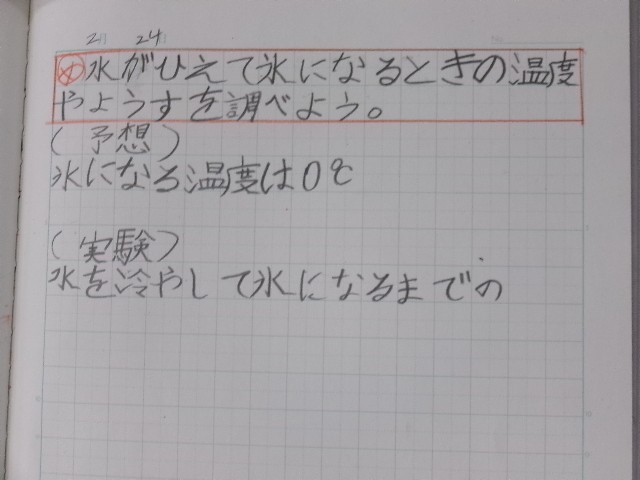 2/24
め 水がひえて氷になるときの温度
やようすを調べよう。
(予想)
氷になる温度は0℃
(実験)
水を冷やして氷になるまでの